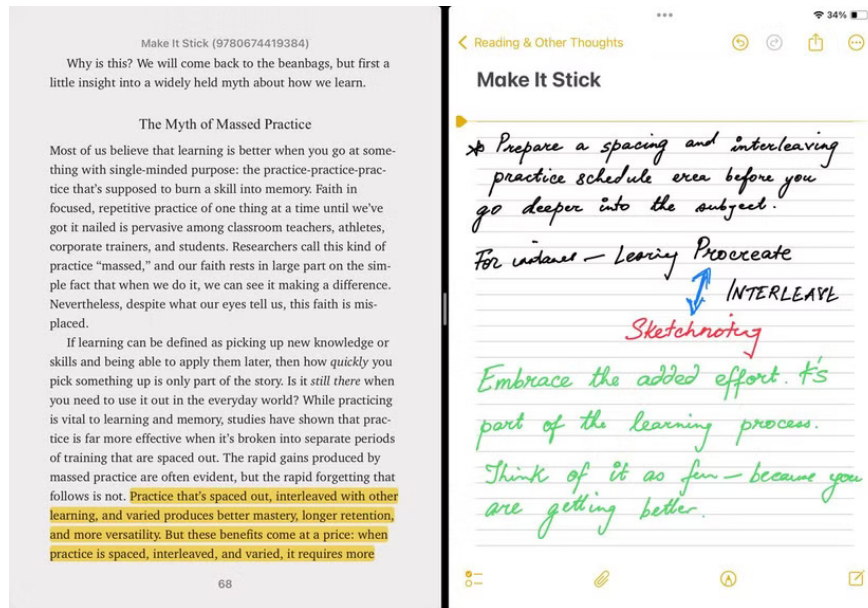 Make It Stick (9780674419384)
Why is this? We will come back to the beanbags, but first a
little insight into a widely held myth about how we learn.
The Myth of Massed Practice
Most of us believe that learning is better when you go at some-
thing with single-minded purpose: the practice-practice-prac-
tice that's supposed to burn a skill into memory. Faith in
focused, repetitive practice of one thing at a time until we've
got it nailed is pervasive among classroom teachers, athletes,
corporate trainers, and students. Researchers call this kind of
practice "massed," and our faith rests in large part on the sim-
ple fact that when we do it, we can see it making a difference.
Nevertheless, despite what our eyes tell us, this faith is mis-
placed.
If learning can be defined as picking up new knowledge or
skills and being able to apply them later, then how quickly you
pick something up is only part of the story. Is it still there when
you need to use it out in the everyday world? While practicing
is vital to learning and memory, studies have shown that prac-
tice is far more effective when it's broken into separate periods
of training that are spaced out. The rapid gains produced by
massed practice are often evident, but the rapid forgetting that
follows is not. Practice that's spaced out, interleaved with other
learning, and varied produces better mastery, longer retention,
and more versatility. But these benefits come at a price: when
practice is spaced, interleaved, and varied, it requires more
68
34%
Reading & Other Thoughts
Make It Stick
Prepare a spacing and interleaving
practice schedule even before you
go deeper into the subject.
For instance – Learning Procreate
INTERLEAVE
Sketchnoting
Embrace the added effort. It's
part of the learning process.
Think of it as fun – because you
are getting better.